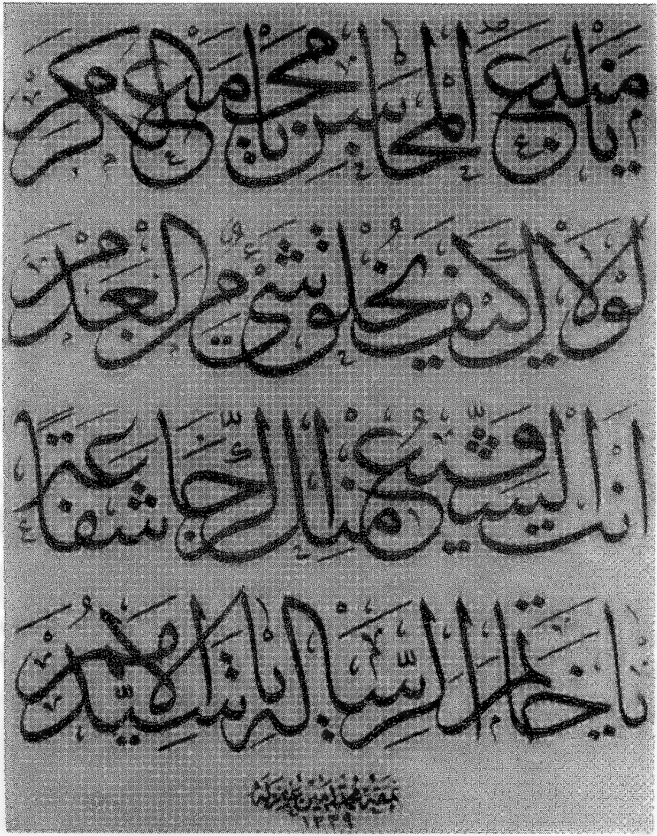 يا منبع المحاسن يا مجمع الكرم
لولاك كيف يخلو شيء من العدم
انت شفيع منك الرجا شفاعة
يا خاتم الرسالة يا سيد الامم
١٣٣٩